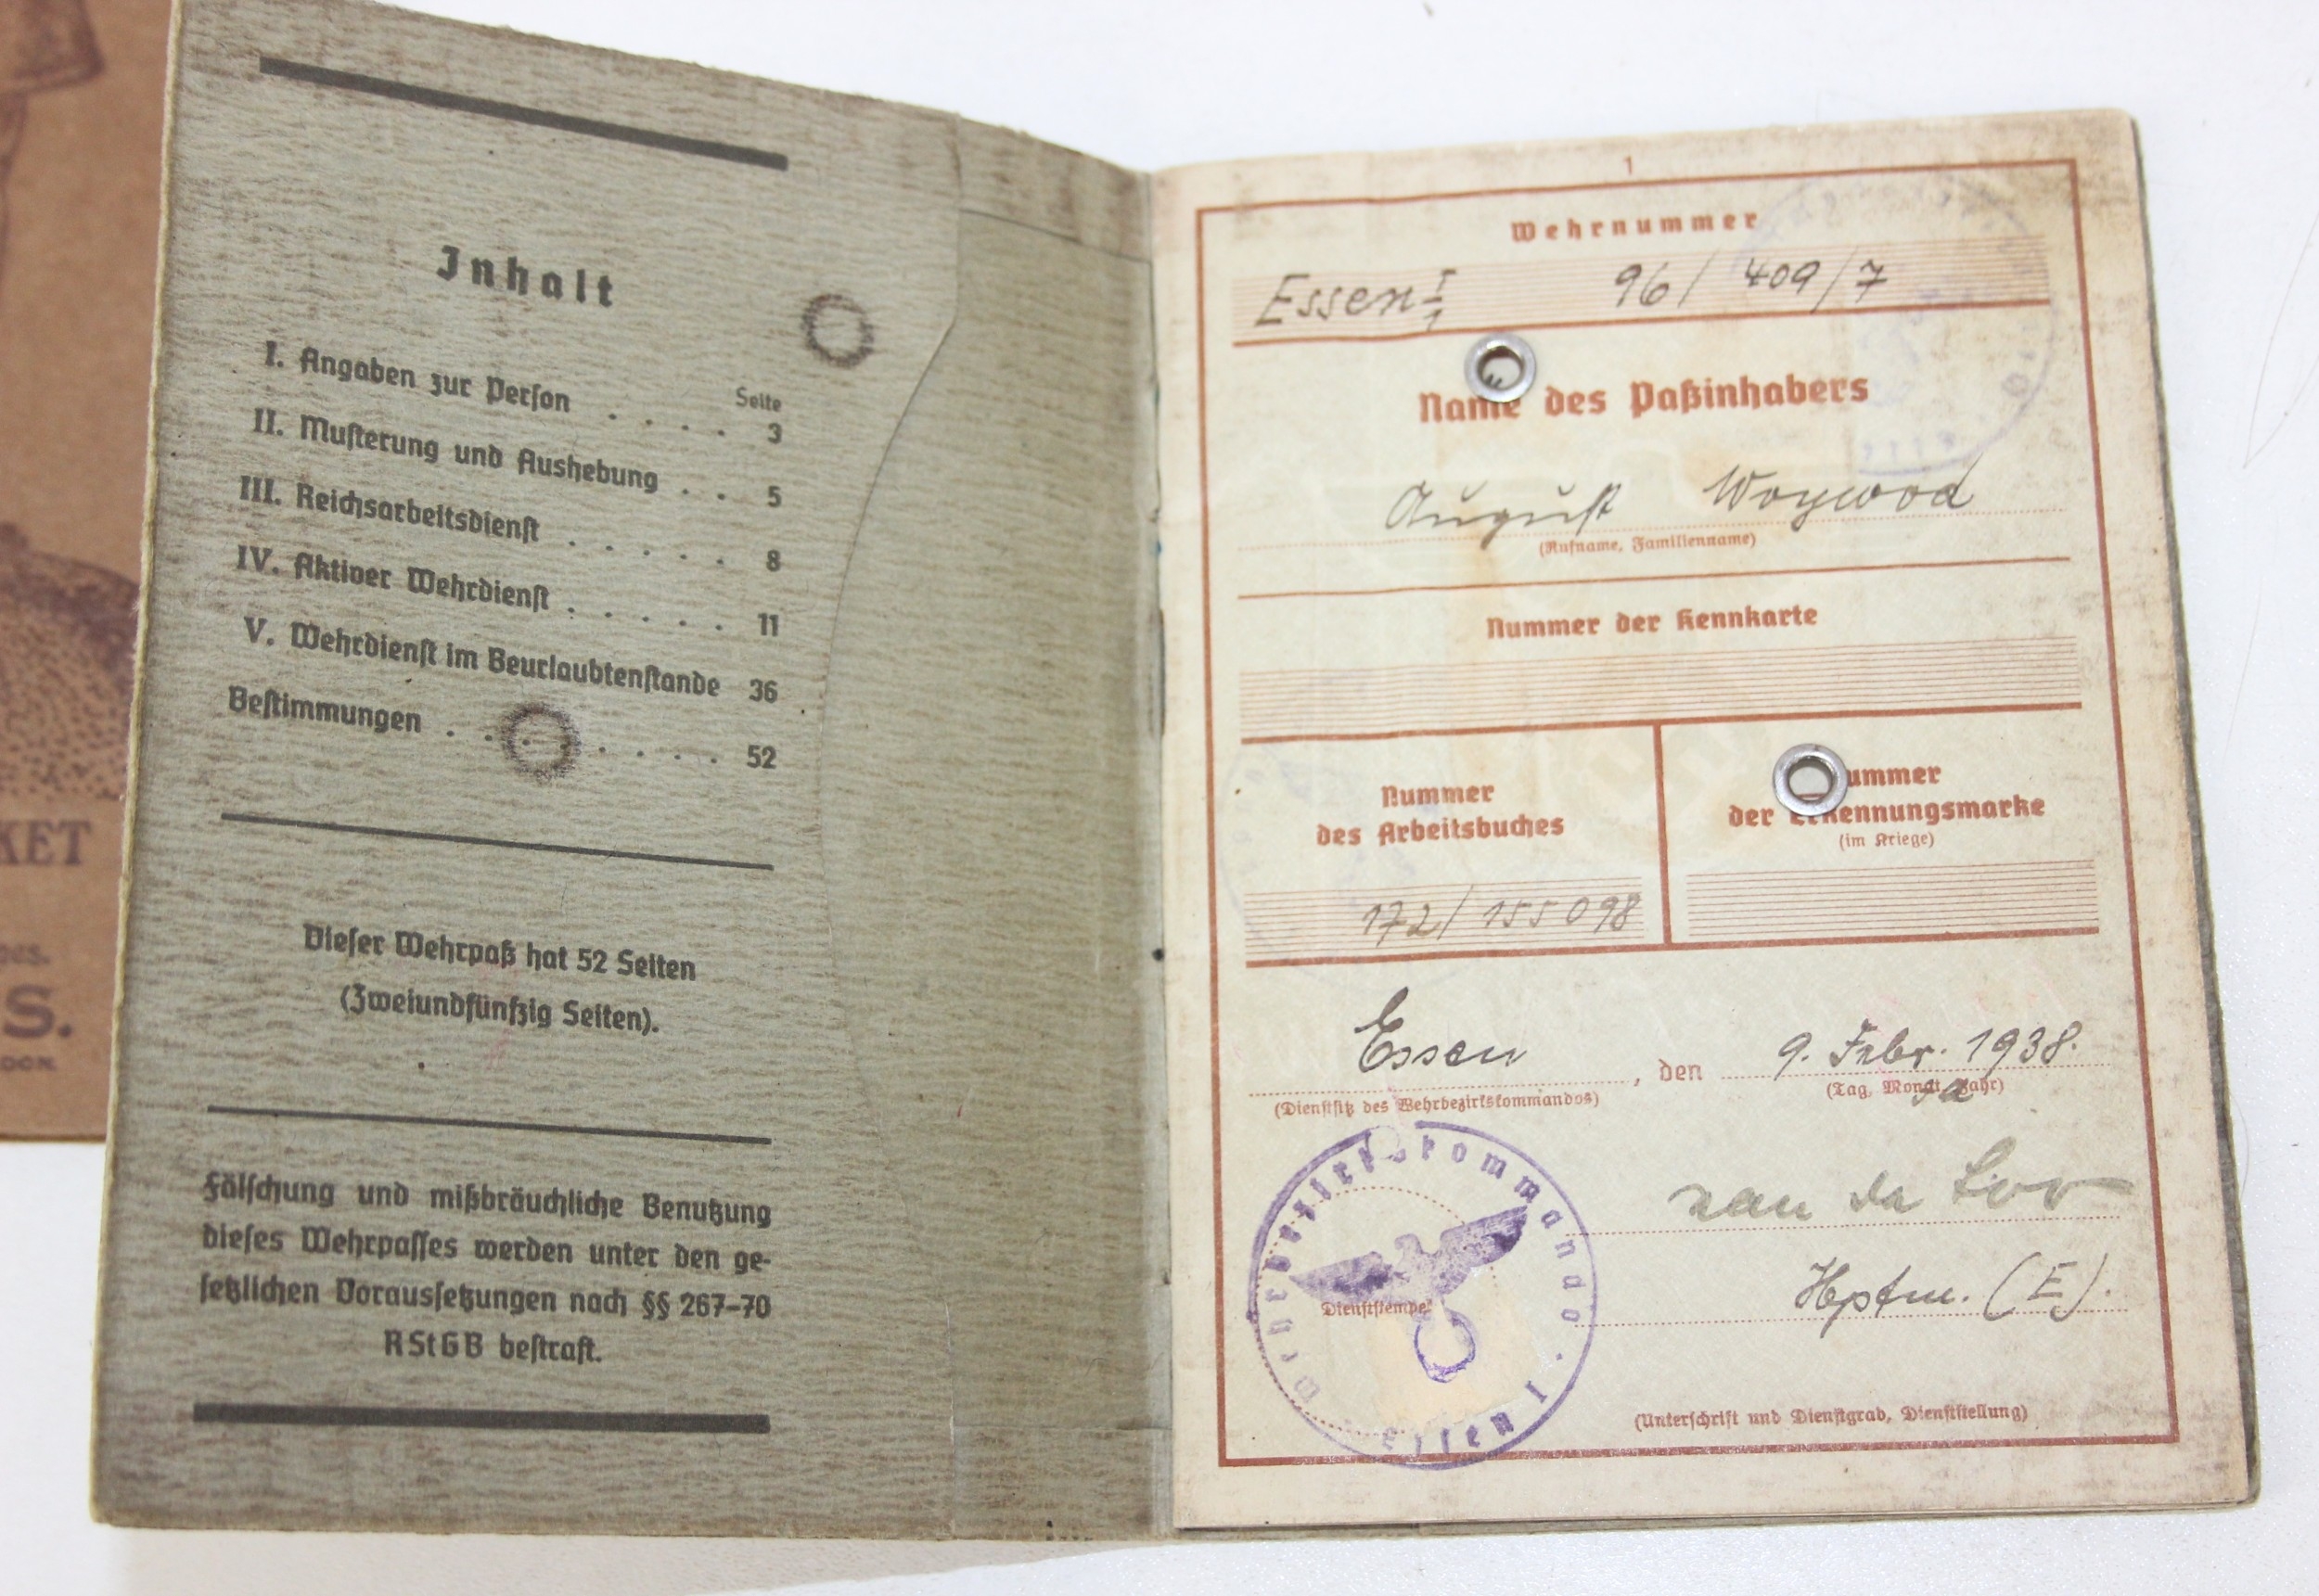 KET
pes.
S.
DON.
Inhalt
Seite
I. Angaben zur Person . . . . . 3
II. Musterung und Aushebung . . 5
III. Reichsarbeitsdienst . . . . . 8
IV. Aktiver Wehrdienst . . . . . 11
V. Wehrdienst im Beurlaubtenstande 36
Bestimmungen . . . . . . . 52
Dieser Wehrpaß hat 52 Seiten
(Zweiundfünfzig Seiten).
Fälschung und mißbräuchliche Benutzung
dieses Wehrpasses werden unter den ge-
setzlichen Voraussetzungen nach §§ 267–70
RStGB bestraft.
1
Wehrnummer
Essen I/1 96/409/7
Name des Paßinhabers
August Woywod
(Rufname, Familienname)
Nummer der Kennkarte
Nummer
des Arbeitsbuches
172/155098
Nummer
der Erkennungsmarke
(im Kriege)
Essen, den 9. Febr. 1938.
(Dienstsitz des Wehrbezirkskommandos) (Tag, Monat, Jahr)
Wehrbezirkskommando
Essen I
Dienststempel
Hptm. (E).
(Unterschrift und Dienstgrad, Dienststellung)